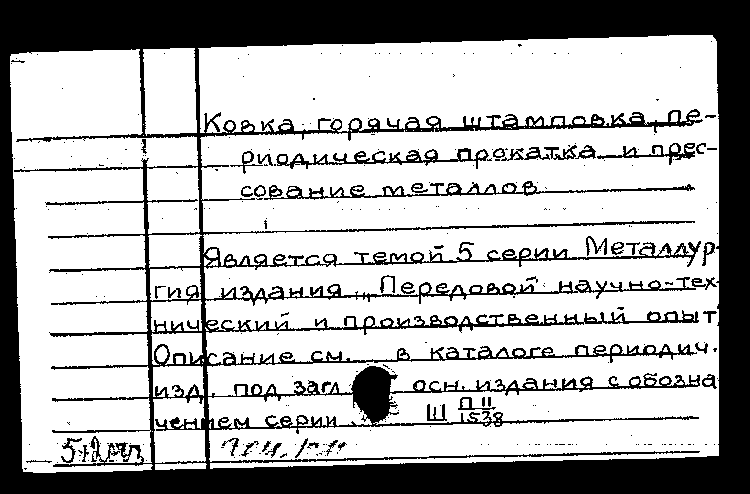 Ковка, горячая штамповка, пе-
риодическая прокатка и прес-
сование металлов
Является темой 5 серии Металлур-
гия издания „Передовой научно-тех-
нический и производственный опыт"
Описание см. в каталоге периодич.
изд. под загл. осн. издания с обозна
чением серии. Ш П II
1538